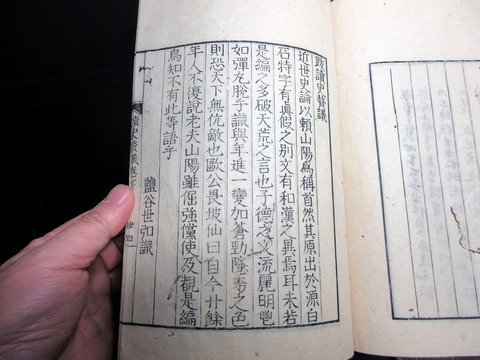 跋讀史贅議
近世史論以賴山陽爲稱首然其原出於源白
石特字有眞假之別文有和漢之異焉耳未若
是編之多破天荒之言也子德之文流麗明鬯
如彈丸脫手識與年進一變加蒼勁隱秀之色
則恐天下無優敵也歐公畏坡仙曰自今廿餘
年人不復說老夫山陽雖倔強儻使及覩是編
焉知不有此等語乎
鹽谷世弘識
讀史贅議卷